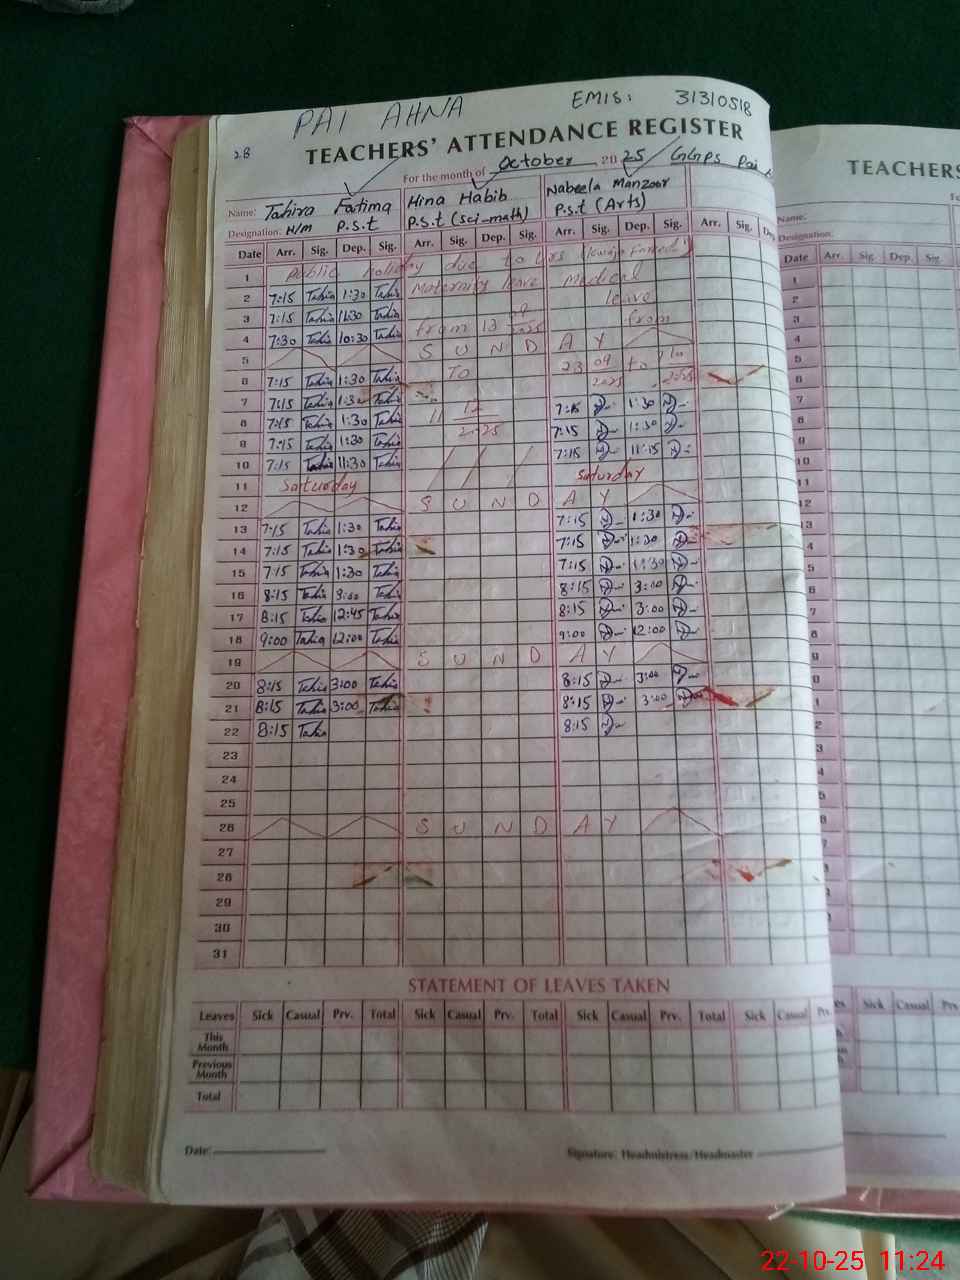 PAI AHNA EMIS: 31310518
28 TEACHERS' ATTENDANCE REGISTER TEACHERS
For the month of October 2025 GGPS Pai
Name: Tahira Fatima Hina Habib Nabeela Manzoor Name:
Designation: H/M P.S.t P.S.t (sci-math) P.S.t (Arts) Designation:
Date Arr. Sig. Dep. Sig. Arr. Sig. Dep. Sig. Arr. Sig. Dep. Sig. Arr. Sig. Dep. Date Arr. Sig. Dep. Sig.
1 Public holiday due to Urs
2 7:15 Tahira 1:30 Tahira Maternity leave Medical
3 7:15 Tahira 11:30 Tahira leave
4 7:30 Tahira 10:30 Tahira from 13 09 2025 from
5 S U N D A Y
6 7:15 Tahira 1:30 Tahira To 23 09 2025 to
7 7:15 Tahira 1:30 Tahira 7:15 1:30
8 7:15 Tahira 1:30 Tahira 11 12 2025 7:15 1:30
9 7:15 Tahira 1:30 Tahira 7:15 11:15
10 7:15 Tahira 11:30 Tahira
11 Saturday Saturday
12 S U N D A Y
13 7:15 Tahira 1:30 Tahira 7:15 1:30
14 7:15 Tahira 1:30 Tahira 7:15 1:30
15 7:15 Tahira 1:30 Tahira 7:15 1:30
16 8:15 Tahira 3:00 Tahira 8:15 3:00
17 8:15 Tahira 12:45 Tahira 8:15 3:00
18 9:00 Tahira 12:00 Tahira 9:00 12:00
19 S U N D A Y
20 8:15 Tahira 3:00 Tahira 8:15 3:00
21 8:15 Tahira 3:00 Tahira 8:15 3:00
22 8:15 Tahira 8:15
23
24
25
26 S U N D A Y
27
28
29
30
31
STATEMENT OF LEAVES TAKEN
Leaves Sick Casual Prv. Total Sick Casual Prv. Total Sick Casual Prv. Total Sick Casual Prv. Sick Casual Prv.
This Month
Previous Month
Total
Date: Signature: Headmistress/Headmaster
22-10-25 11:24